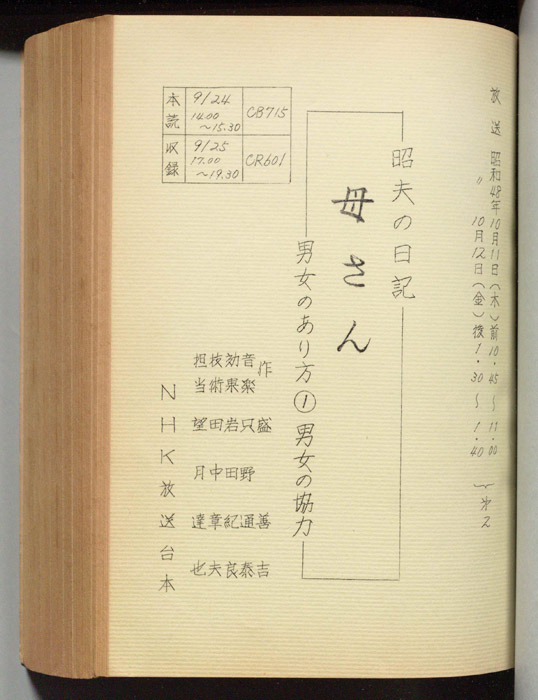 放送 昭和48年10月11日(木)前10・45〜11・00
〃 10月12日(金)後1・30〜1・40
昭夫の日記
母さん
男女のあり方① 男女の協力
本読 9/24 14.00〜15.30 CB715
収録 9/25 17.00〜19.30 CR601
作 盛 善吉
音楽 只野通泰
効果 岩田紀良
技術 田中章夫
担当 望月達也
NHK放送台本